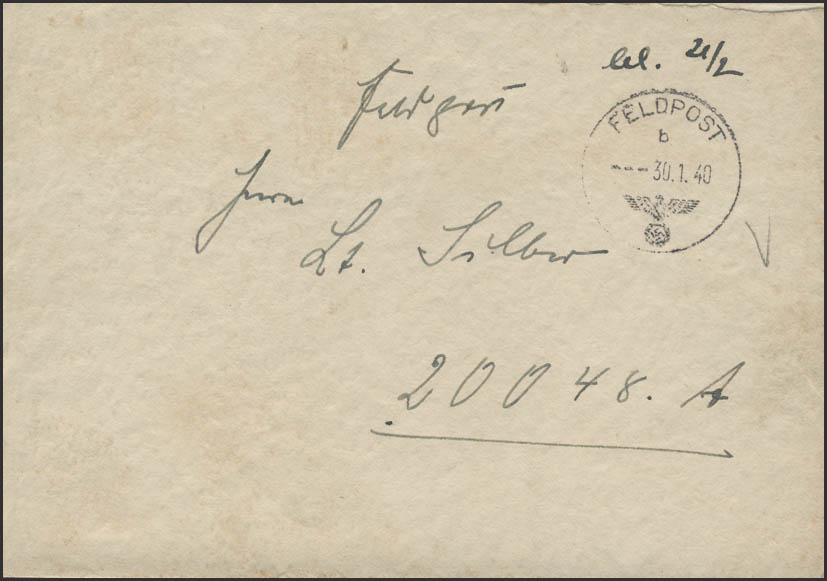 bel. 21/2
Feldpost
FELDPOST
b
---30.1.40
Herrn
Lt. Silber
20048. A